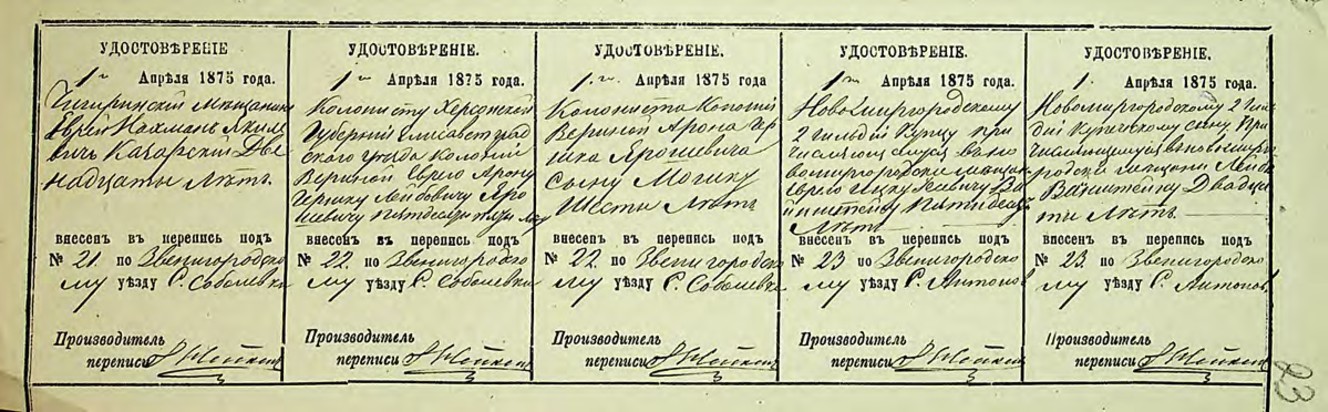 УДОСТОВѢРЕНІЕ
1го Апрѣля 1875 года.
Чигиринскій Мѣщанинъ
Еврей Нахманъ Якиле
вичъ Качарскій Две
надцать Лѣтъ.
внесенъ въ перепись подъ
№ 21. по Звенигородско
му уѣзду С. Соболевка
Производитель
переписи
УДОСТОВѢРЕНІЕ.
1го Апрѣля 1875 года.
Колонисту Херсонской
Губерніи Елисаветград
скаго уѣзда Колоніи
Вериной Еврею Арону
Гершку Лейбовичу Яро
шевичу пятдесятъ лѣтъ
внесенъ въ перепись подъ
№ 22. по Звенигородско
му уѣзду С. Соболевка
Производитель
переписи
УДОСТОВѢРЕНІЕ.
1го Апрѣля 1875 года
Колониста Колоніи
Вериной Арона Гер
шка Ярошевича
Сыну Мошку
Шести Лѣтъ
внесенъ въ перепись подъ
№ 22. по Звенигородско
му уѣзду С. Соболевка
Производитель
переписи
УДОСТОВѢРЕНІЕ.
1го Апрѣля 1875 года.
Новомиргородскому
2 Гильдіи Купцу при
числяющемуся в ново
миргородскіи мѣщане
Еврею Ицку Ва
йнштейну Пятидесяти
Лѣтъ
внесенъ въ перепись подъ
№ 23 по Звенигородско
му уѣзду С. Антонов
Производитель
переписи
УДОСТОВѢРЕНІЕ.
1. Апрѣля 1875 года
Новомиргородскому 2 Гиль
діи Купеческому сыну При
числяющемуся в новомирго
родскіи мещане Лейбѣ
Ванштейну Двадца
ти Лѣтъ
внесенъ въ перепись подъ
№ 23. по Звенигородско
му уѣзду С. Антонов
Производитель
переписи
23